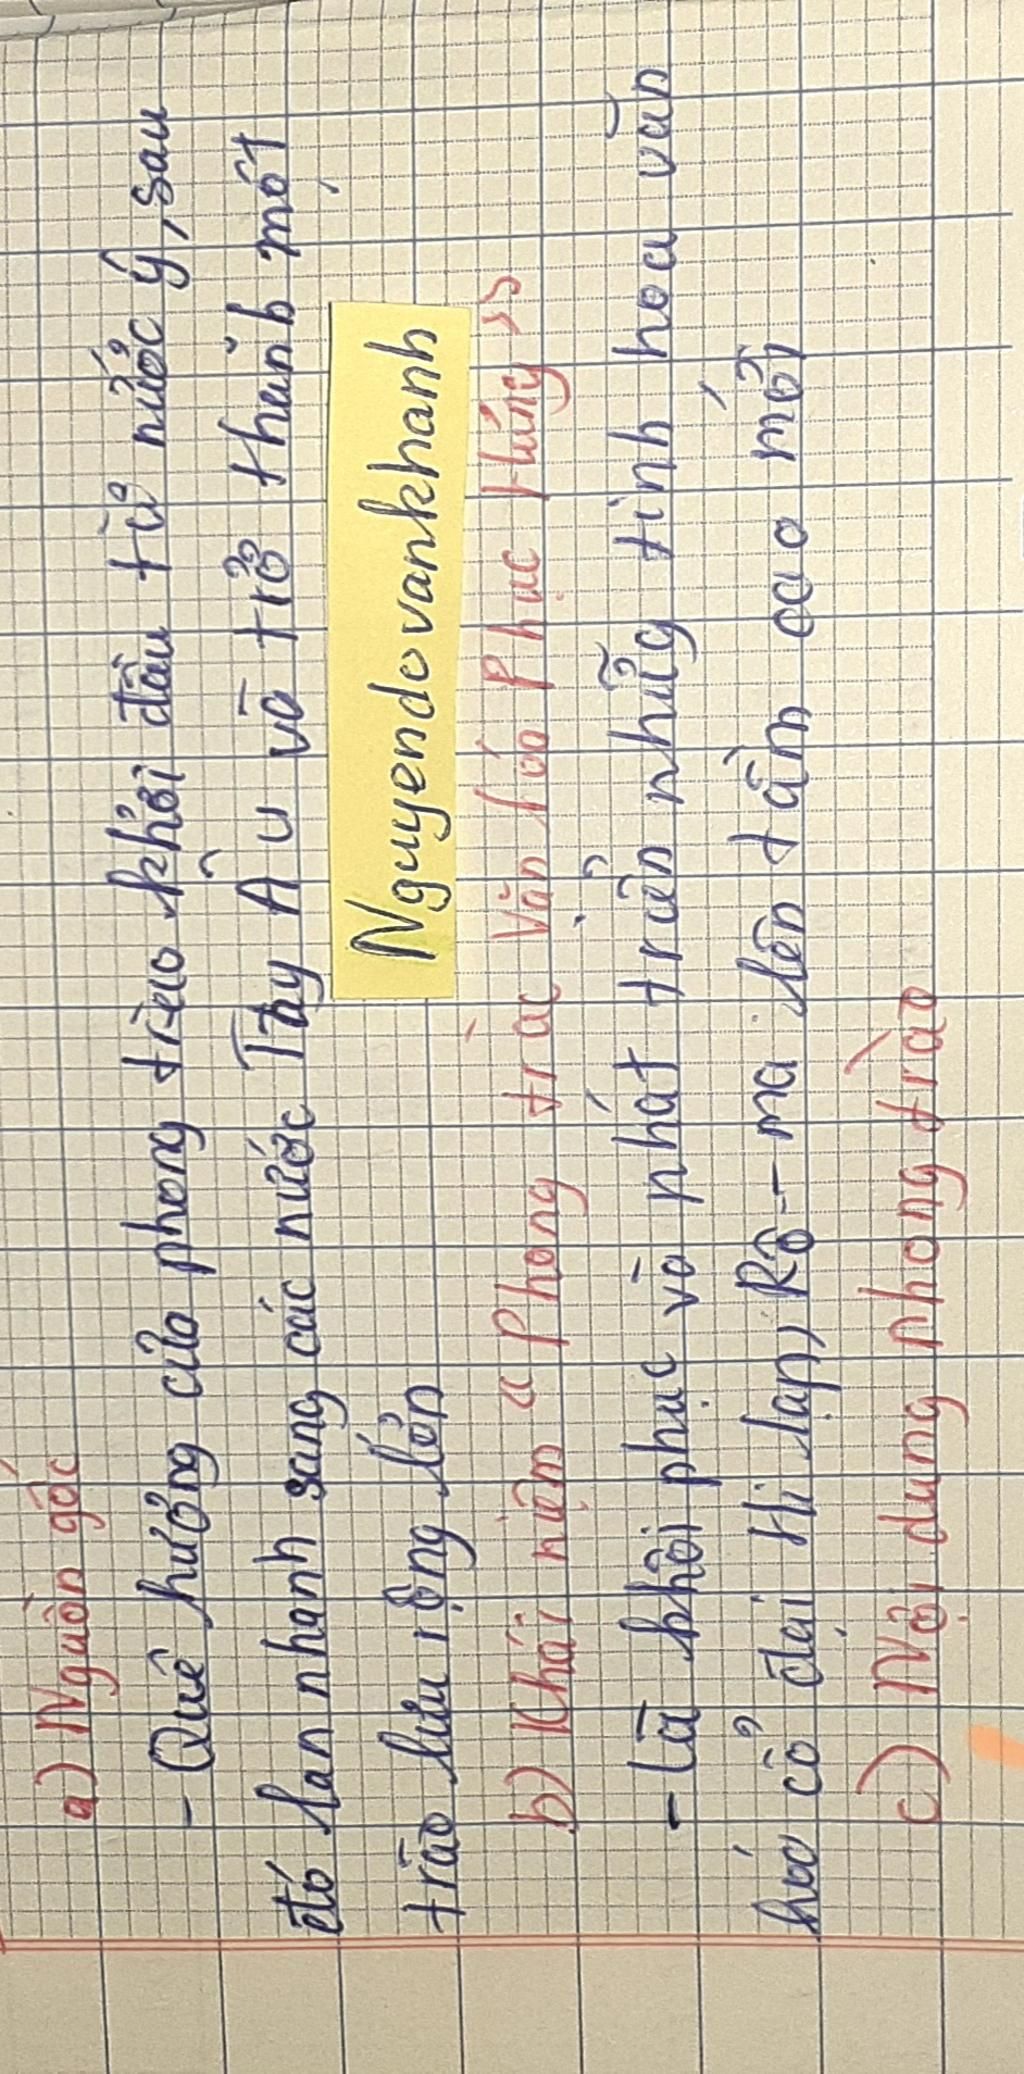 a) Nguồn gốc
- Quê hương của phong trào khởi đầu từ nước ý, sau
đó lan nhanh sang các nước Tây Âu và trở thành một
trào lưu rộng lớn
Nguyendovankhanh
b) Khái niệm "Phong trào Văn hóa Phục Hưng"
- Là khôi phục và phát triển những tinh hoa văn
hóa cổ đại Hi lạp, Rô-ma lên tầm cao mới
c) Nội dung phong trào